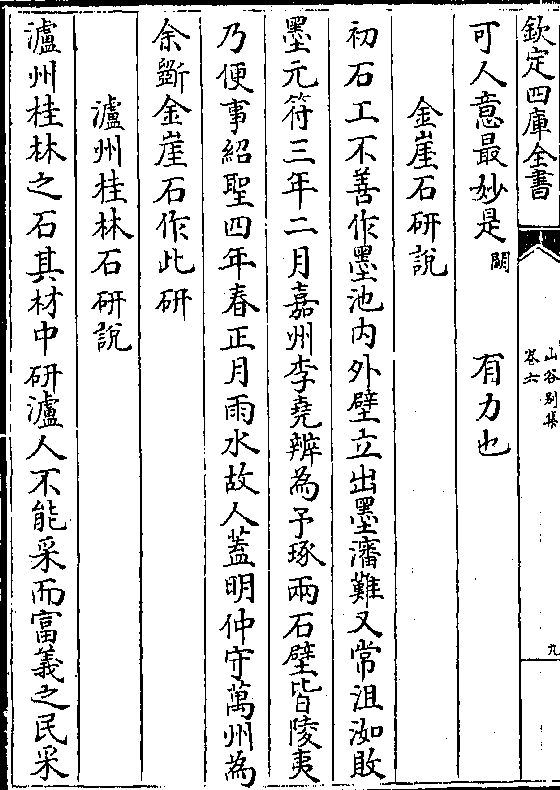 欽定四庫全書
山谷別集
卷六
九
可人意最妙是闕 有力也
金崖石研說
初石工不善作墨池内外壁立出墨瀋難又常沮洳敗
墨元符三年二月嘉州李堯辨為予琢兩石壁皆陵夷
乃便事紹聖四年春正月雨水故人蓋明仲守萬州為
余斵金崖石作此研
瀘州桂林石研說
瀘州桂林之石其材中研瀘人不能采而富義之民采